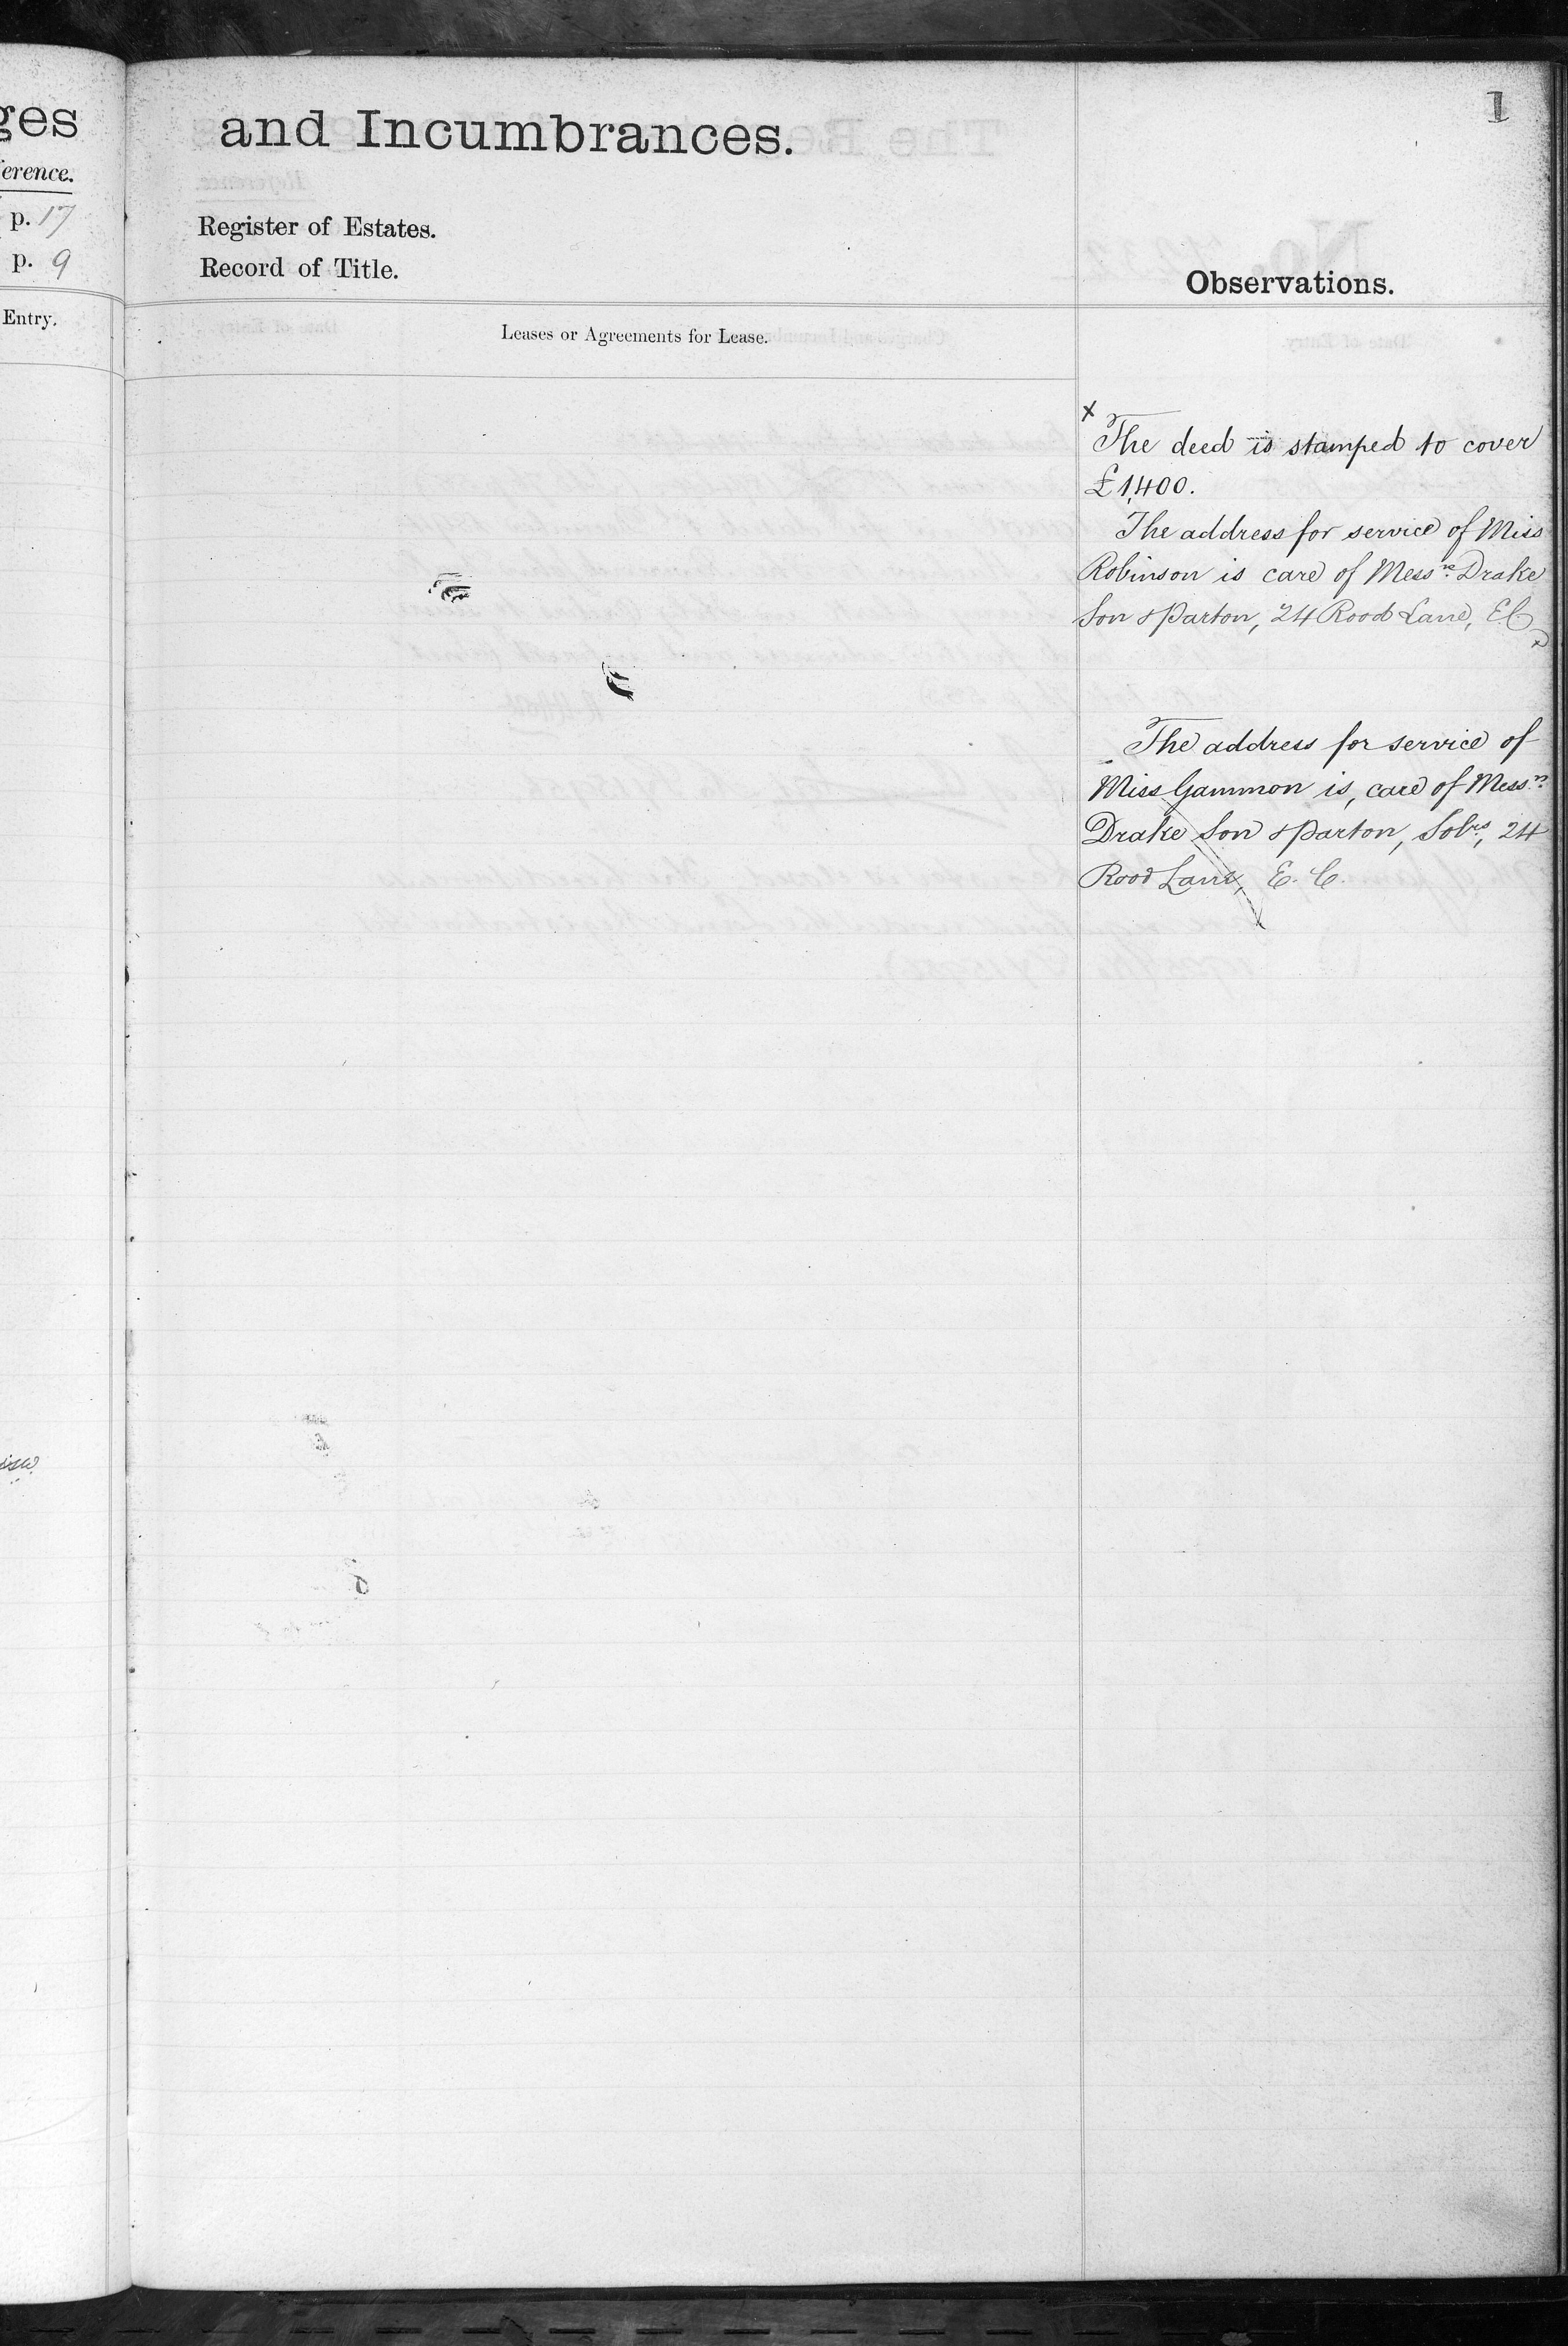 ges
erence.
p. 17
p. 9
Entry.
1
and Incumbrances.
Register of Estates.
Record of Title.
Observations.
Leases or Agreements for Lease.
x
The deed is stamped to cover
£1,400.
The address for service of Miss
Robinson is care of Messrs. Drake
Son & Parton, 24 Rood Lane, E.C.
x
The address for service of
Miss Gammon is, care of Messrs.
Drake Son & Parton, Solrs, 24
Rood Lane, E. C.